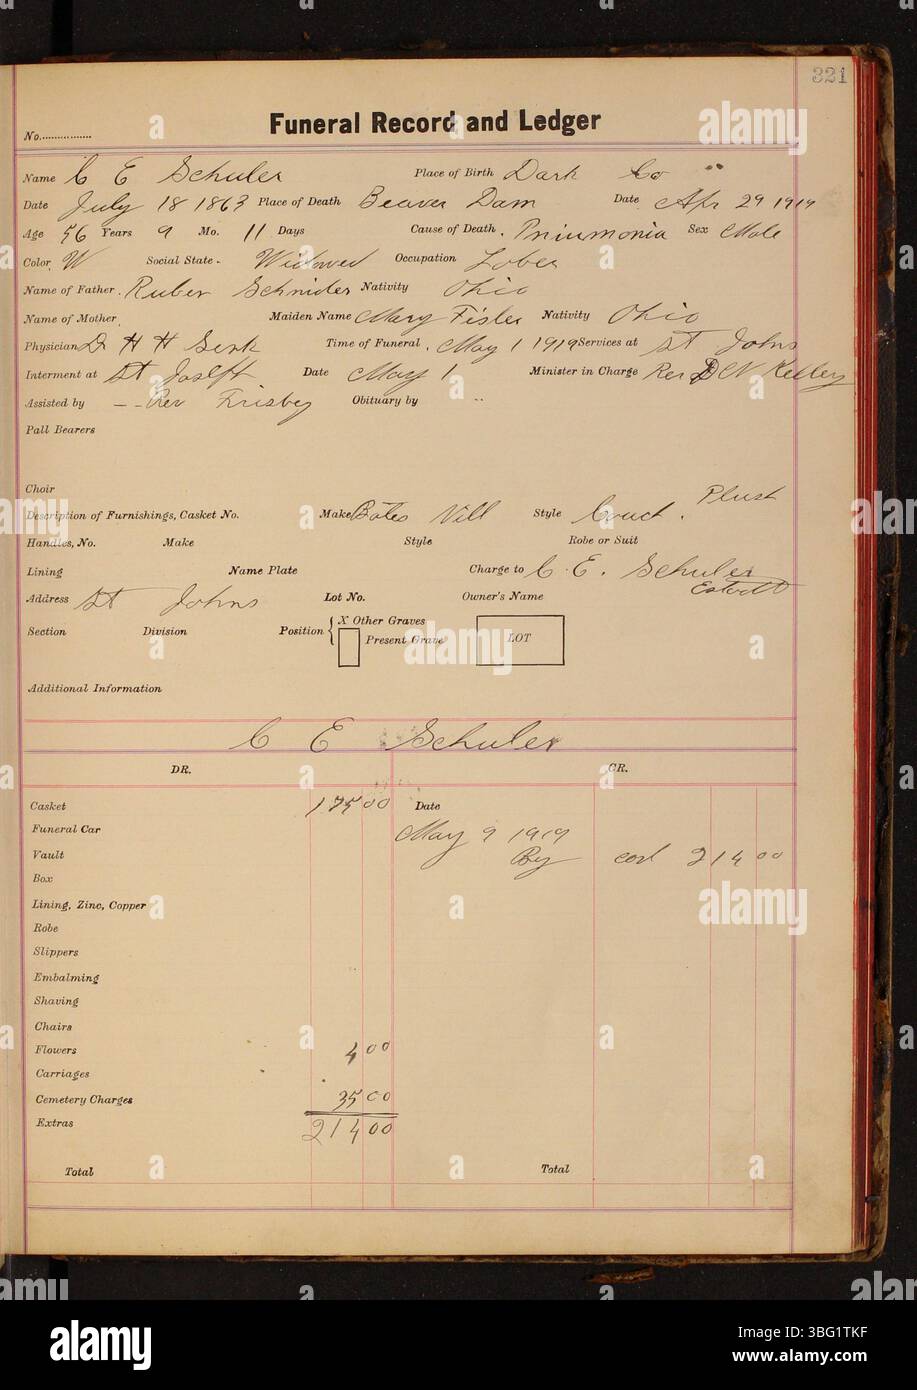 321
No.
Funeral Record and Ledger
Name C E Schuler Place of Birth Dark Co "
Date July 18 1863 Place of Death Beaver Dam Date Apr 29 1919
Age 56 Years 9 Mo. 11 Days Cause of Death. Pniumonia Sex Male
Color. W Social State. Widowed Occupation Lober
Name of Father. Ruben Schnider Nativity Ohio
Name of Mother. Maiden Name Mary Fisler Nativity Ohio
Physician Dr H H Time of Funeral. May 1 1919 Services at St Johns
Interment at St Date May 1 Minister in Charge Rev D N Kelley
Assisted by -- Rev Frisbey Obituary by "
Pall Bearers
Choir
Plush
Description of Furnishings, Casket No. Make Bates Vill Style Couch.
Handles, No. Make Style Robe or Suit
Lining Name Plate Charge to C. E. Schuler
Address St Johns Lot No. Owner's Name
Section Division Position { X Other Graves
Present Grave LOT
Additional Information
C E Schuler
DR. CR.
Casket 175 00 Date
Funeral Car May 9 1919
Vault By 214 00
Box
Lining, Zinc, Copper
Robe
Slippers
Embalming
Shaving
Chairs
Flowers 4 00
Carriages
Cemetery Charges 35 00
Extras 214 00
Total Total
alamy
Image ID: 3BG1TKF
www.alamy.com